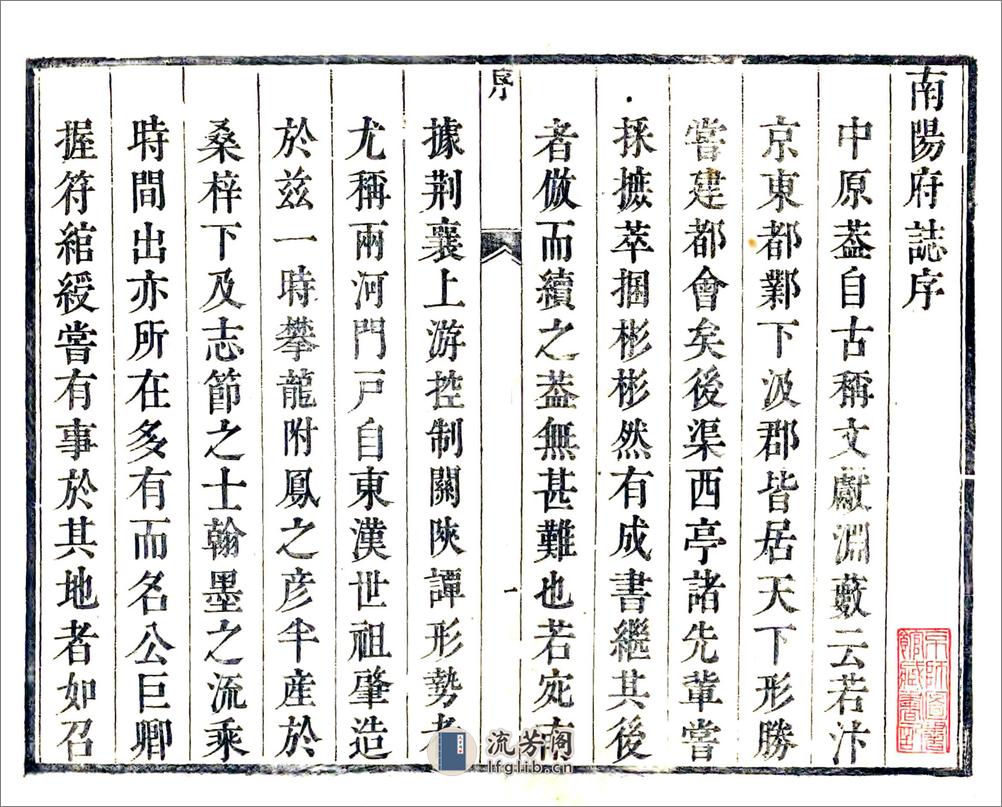 南陽府誌序
中原葢自古稱文獻淵藪云若汴
京東都鄴下汲郡皆居天下形勝
嘗建都會矣後渠西亭諸先輩嘗
採摭萃捆彬彬然有成書繼其後
者倣而續之葢無甚難也若宛南
序
一
據荆襄上游控制關陝譚形勢者
尤稱兩河門戸自東漢世祖肇造
於兹一時攀龍附鳳之彦半産於
桑梓下及志節之士翰墨之流乘
時間出亦所在多有而名公巨卿
握符綰綬嘗有事於其地者如召
京師圖書
館藏書記
流芳閣
lfglib.cn